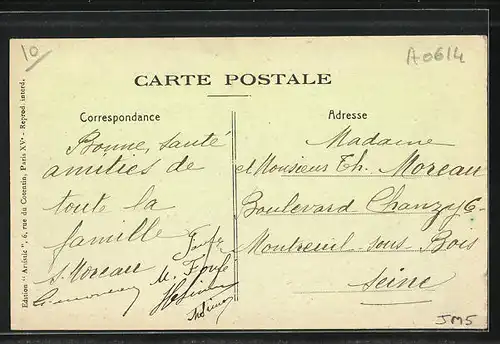 10
A0614
CARTE POSTALE
Correspondance
Adresse
Bonne santé
amitiés de
toute la
famille
Madame
et Monsieur Th. Moreau
Boulevard Chanzy 6
Montreuil-sous-Bois
Seine
S. Moreau
Edition "Artistic", 6, rue du Cotentin, Paris XVe - Reprod. interd.
JM5